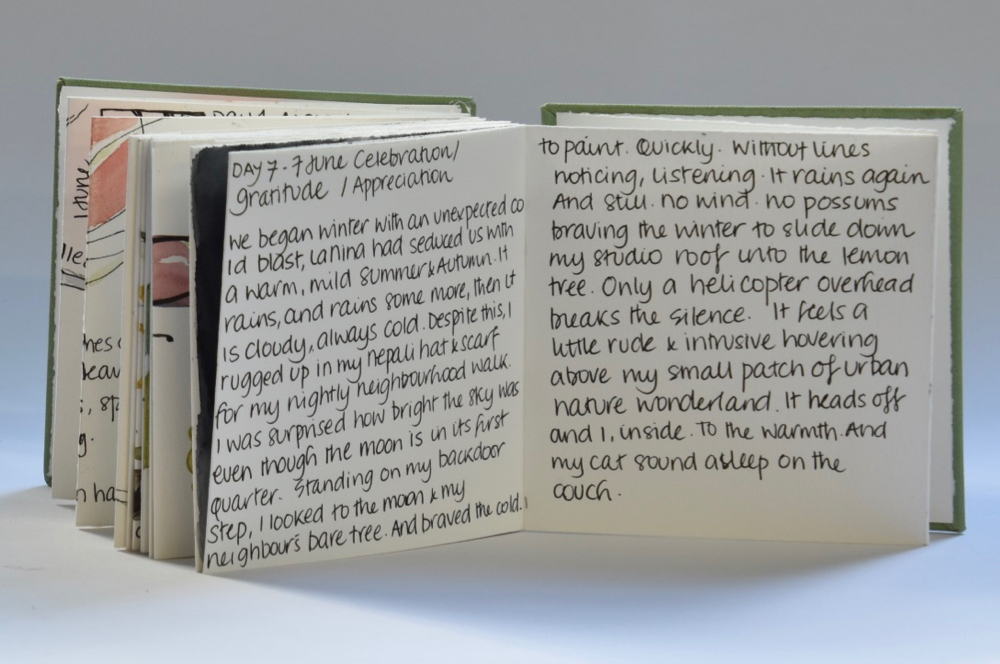 DAY 7 - 7 June Celebration/
gratitude / Appreciation
We began winter with an unexpected co
ld blast, La Nina had seduced us with
a warm, mild summer & Autumn. It
rains, and rains some more, then it
is cloudy, always cold. Despite this, I
rugged up in my nepali hat & scarf
for my nightly neighbourhood walk.
I was surprised how bright the sky was
even though the moon is in its first
quarter. Standing on my backdoor
step, I looked to the moon & my
neighbour's bare tree. And braved the cold.
to paint. Quickly. Without lines
noticing, listening. It rains again
And still. no wind. no possums
braving the winter to slide down
my studio roof into the lemon
tree. Only a helicopter overhead
breaks the silence. It feels a
little rude & intrusive hovering
above my small patch of urban
nature wonderland. It heads off
and I, inside. To the warmth. And
my cat sound asleep on the
couch.